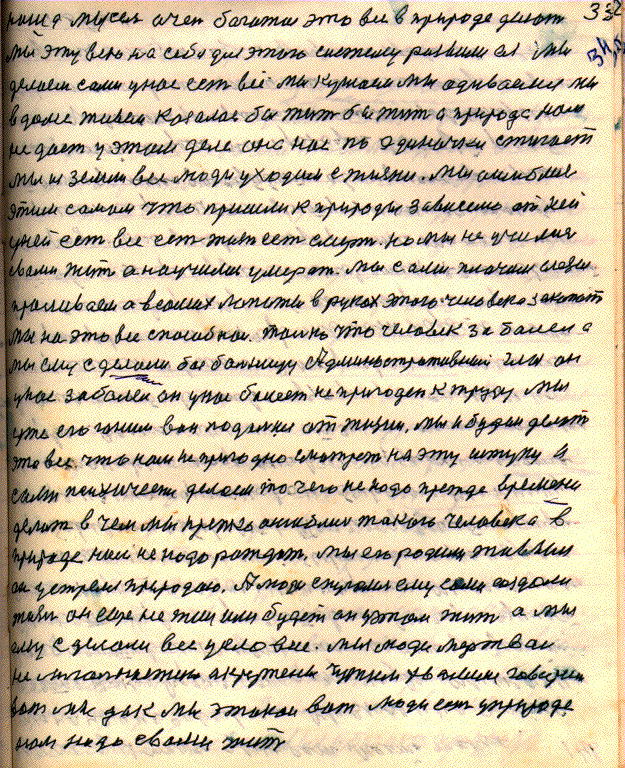 наша мысел очен богатая это все в природе делат 332
мы эту вещ на себя для этого систему развили ея мы 34
делаем сами унас ест всё мы кушаем мы одиваемся мы
в доме живем казалос бы жит бы жит а природа нам
не дает у этом деле она нас по одиначки стигает
мы из земли все люди уходим с жизни. мы ошиблис
этим самым что пришли к природы зависемо от ней
уней ест все ест жизн ест смерт. но мы не училис
сваим жит а научилис умерат. мы сами плачим слезы
проливаем а всаших лопаты в руках этого человека закопат
мы на это все способнаи. толко что человек заболел а
мы ему сделали бы болницу Администротивнаи чтобы он
унас заболел он унас болеет не пригоден к труду мы
уже его гоним вон подалше от жизни. мы и будем делат
это все. что нам не пригодно смотрет на эту штуку а
сами психически делаем то чего не надо прежде времени
делат в чем мы прежде ошиблис такого человека в
природе нам не надо рождат. мы его родили живым
он устрелся природаю. А люди ему сами создали
жизн он еще не жил или будет он у этом жит а мы
ему сделали все условие. мы люди мертваи
окружены чужим хвалимс говорим
вот мы дак мы этакаи вот люди ест уприроде
нам надо сваим жит